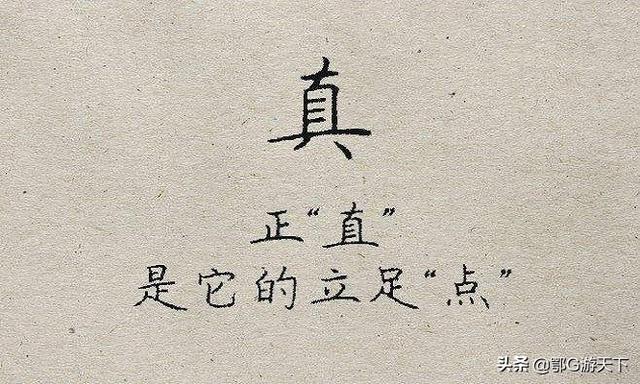 真
正“直”
是它的立足“点”
头条 @鄂G游天下